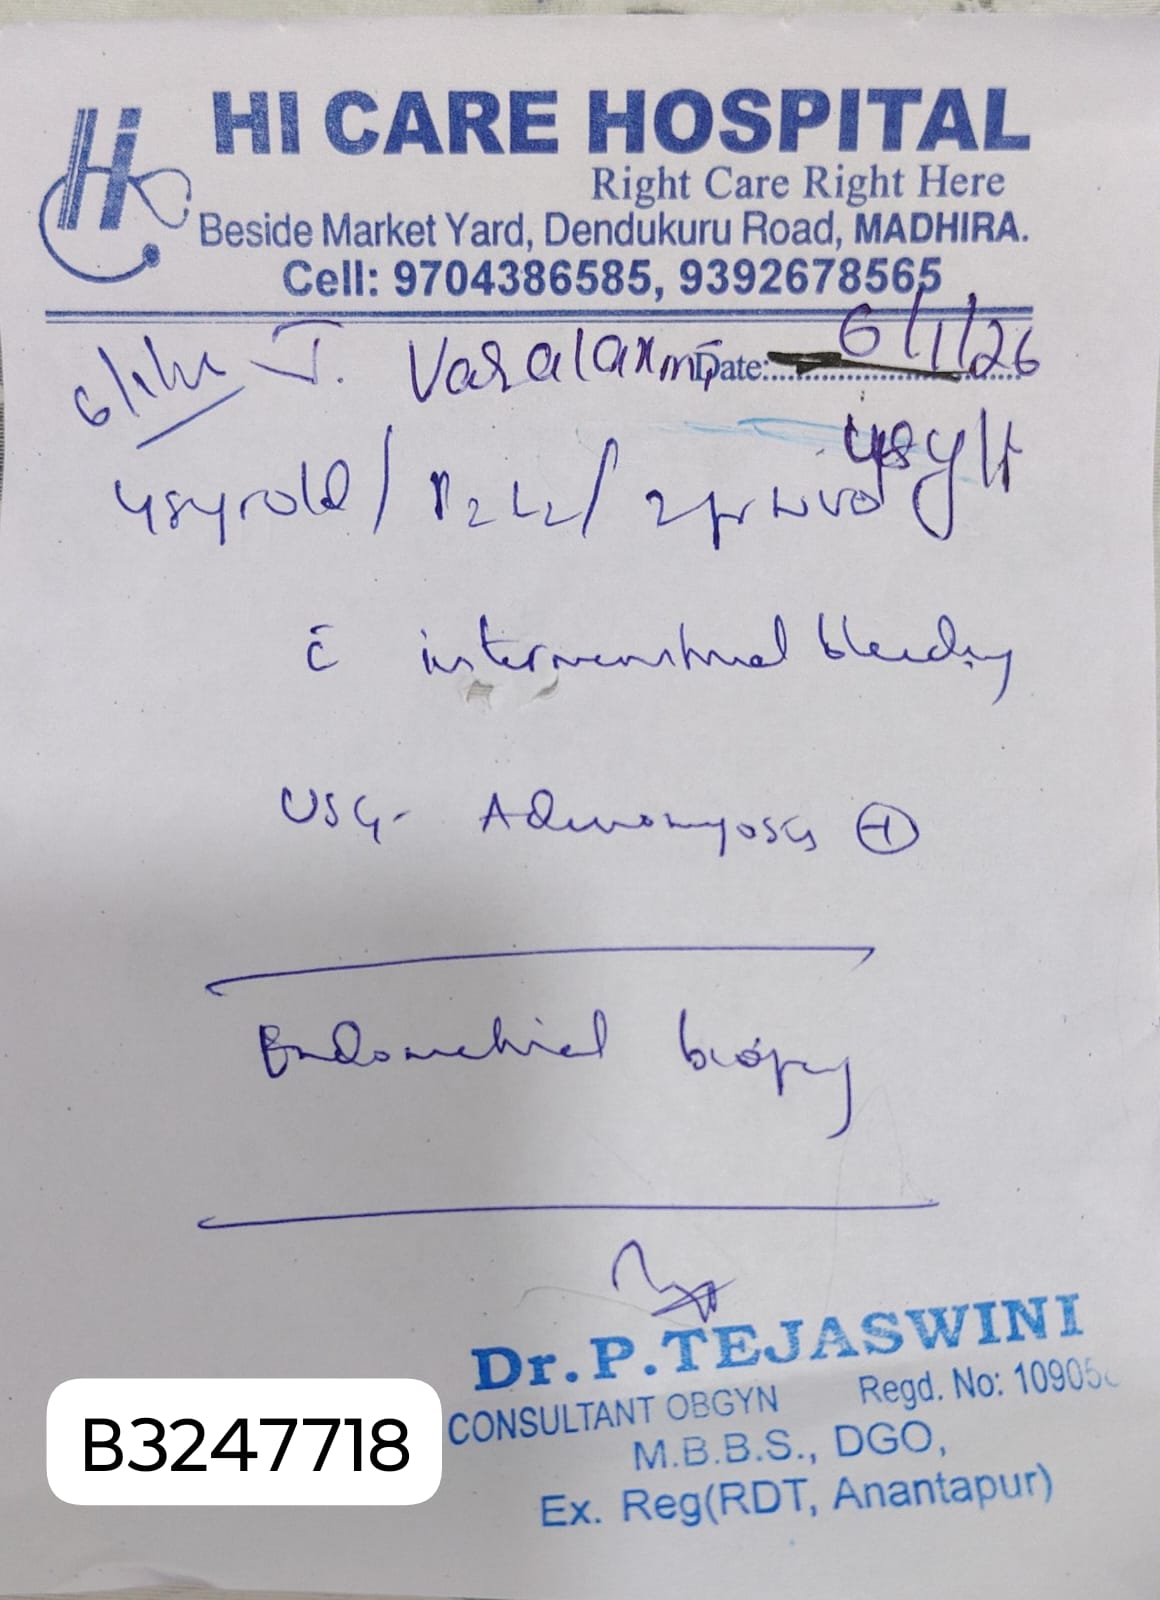 HI CARE HOSPITAL
Right Care Right Here
Beside Market Yard, Dendukuru Road, MADHIRA.
Cell: 9704386585, 9392678565
J. Varalaxmi Date: 6/1/26
48y/f
48yrold / P2L2 / 2pr
c̄ intermenstrual bleeding
USG- Adenomyosis ⊕
Endometrial biopsy
Dr. P. TEJASWINI
CONSULTANT OBGYN Regd. No: 10905
M.B.B.S., DGO,
Ex. Reg(RDT, Anantapur)
B3247718